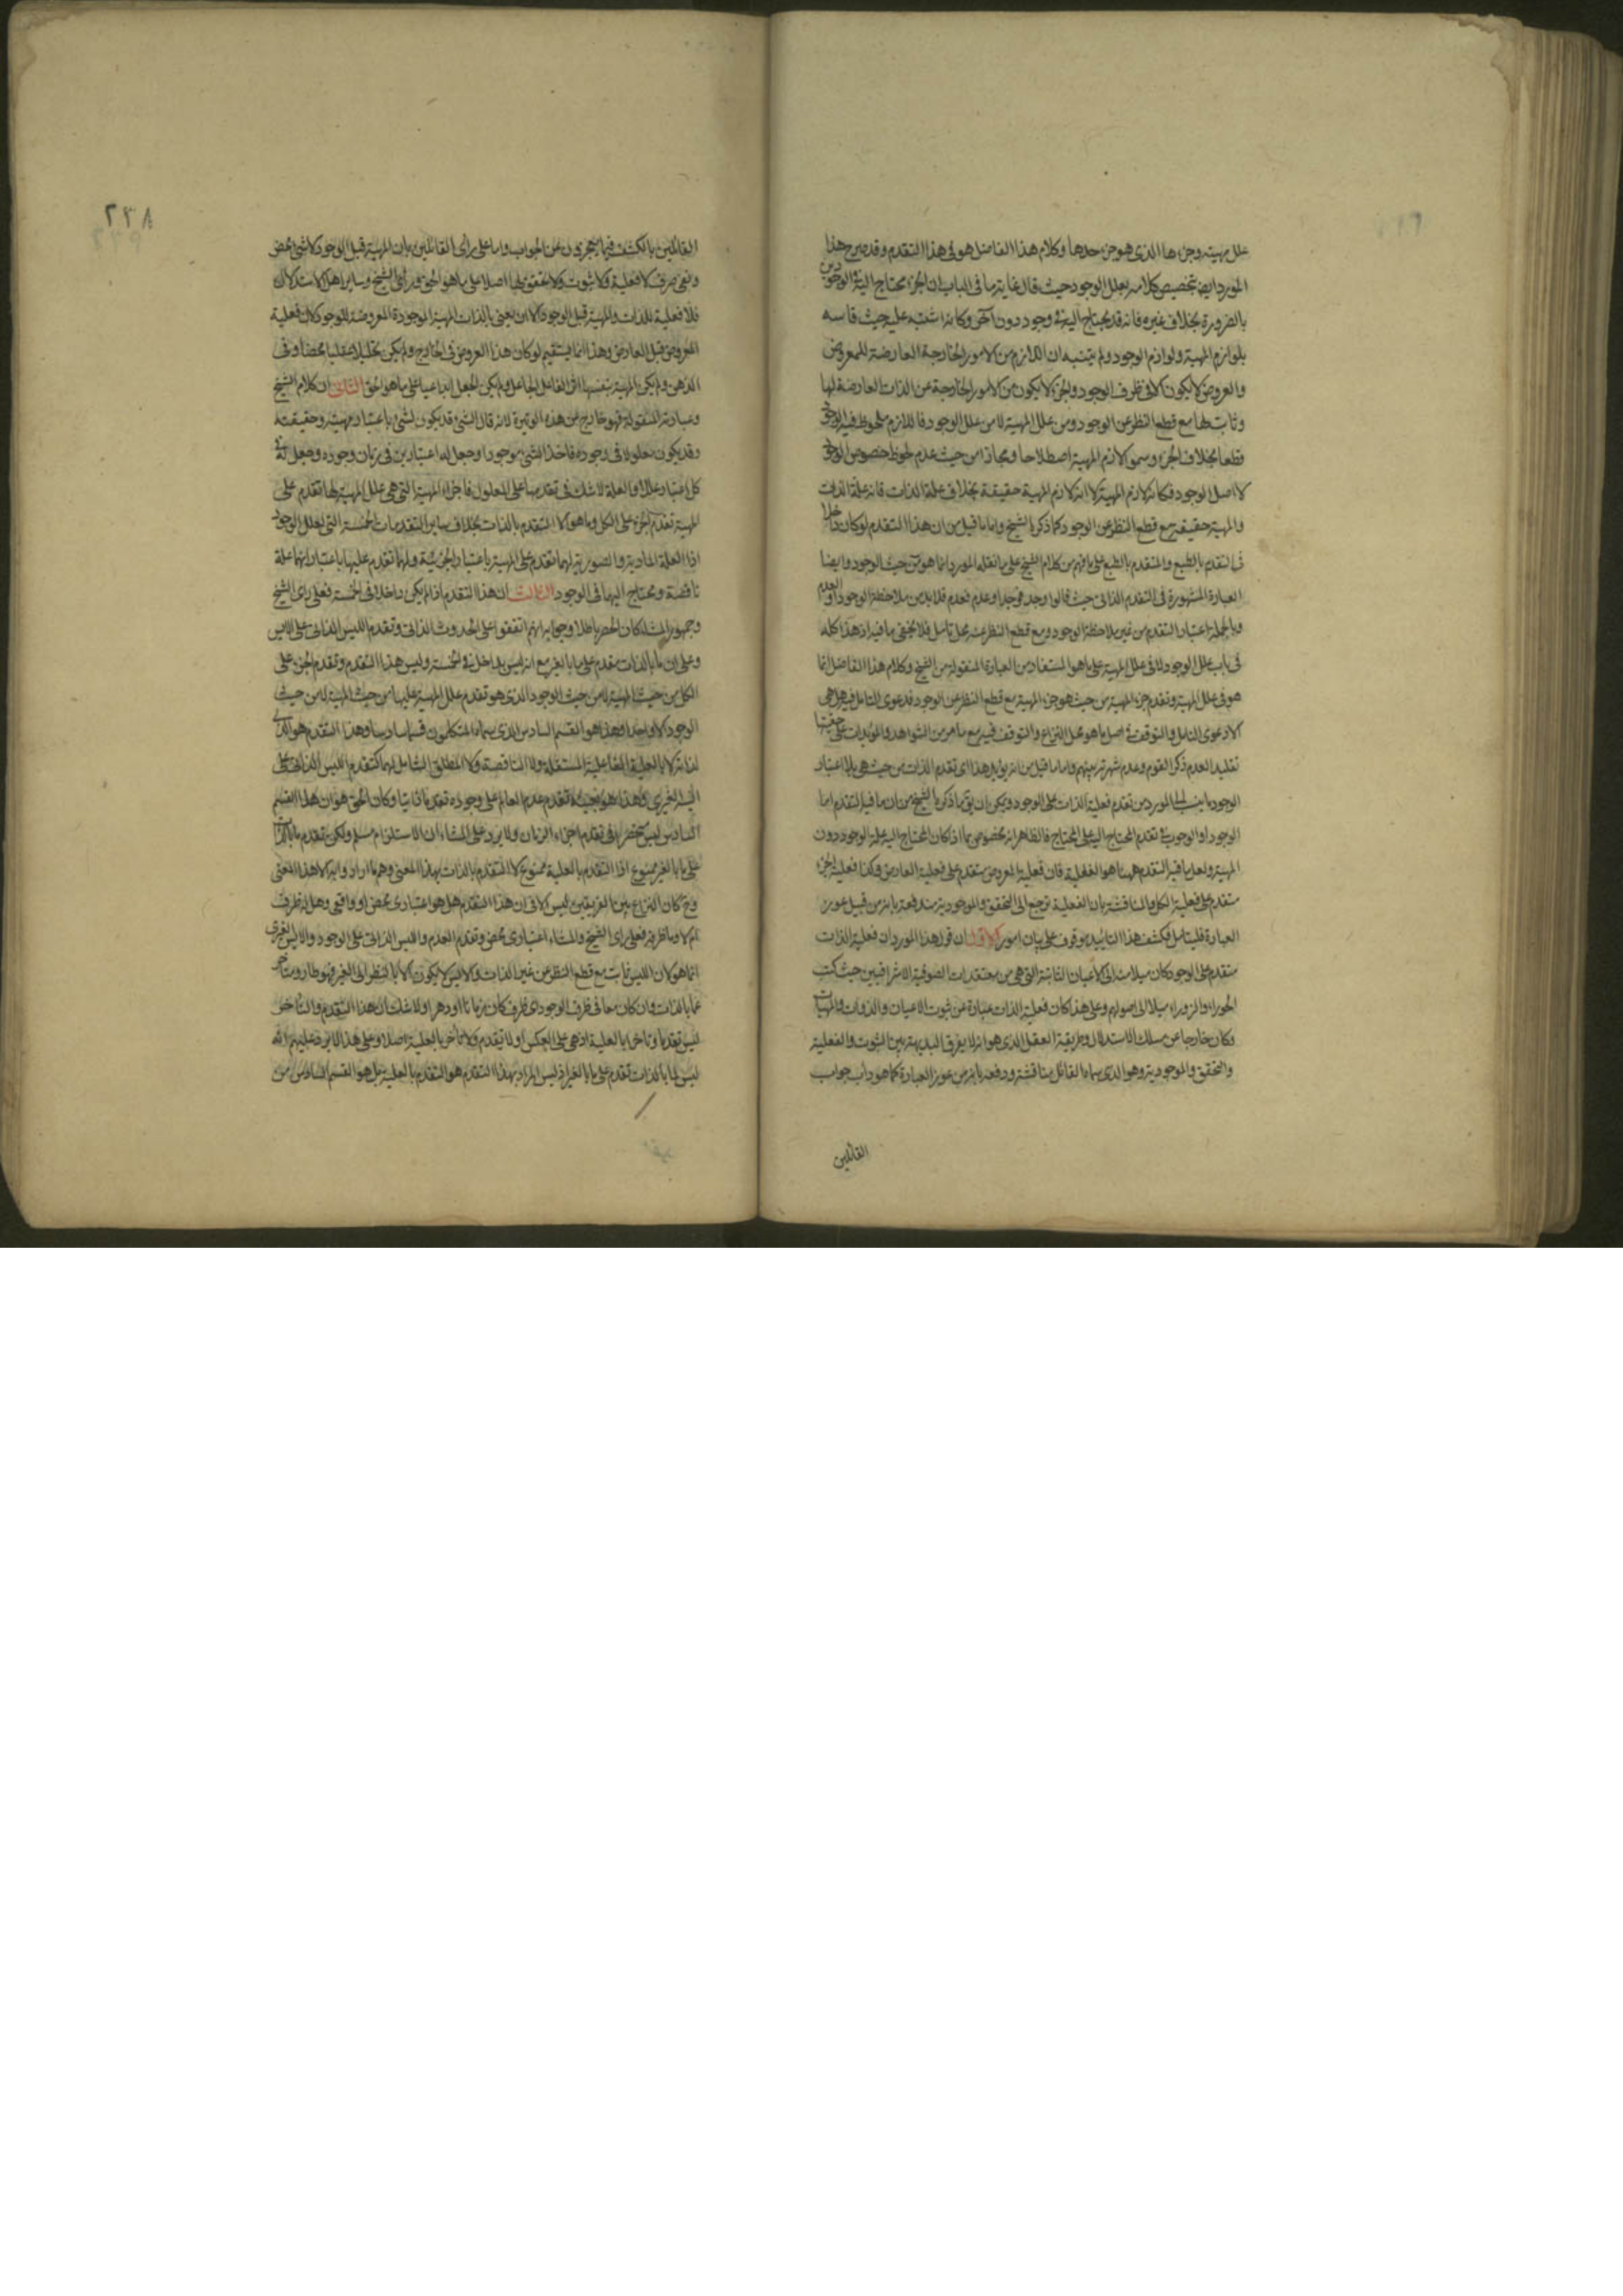 علل مهيته وجزءها الذى هو جزء حدها وكلام هذا الفاضل هو فى هذا التقدم وقد صرح هذا
المورد ايضا بتخصيص كلامه بعلل الوجود حيث قال غاية ما فى الباب ان الجزء محتاج اليه فى الوجودين
بالضرورة بخلاف غيره فانه قد يحتاج اليه فى وجود دون آخر وكانه اشتبه عليه حيث قاسه
بلوازم المهية ولوازم الوجود ولم يتنبه ان اللازم من الامور الخارجة العارضة للمعروض
والعروض لا يكون الا فى ظرف الوجود والجزء لا يكون من الامور الخارجة عن الذات العارضة لها
وثابت لها مع قطع النظر عن الوجود ومن علل المهية لا من علل الوجود فاللازم ملحوظ فيه الوجود
قطعا بخلاف الجزء وسمو لازم المهية اصطلاحا ومجازا من حيث عدم لحوظ خصوص الوجود
لا اصل الوجود فكانه لازم المهية لا انه لازم المهية حقيقة بخلاف علة الذات فانه علة الذات
والمهية حقيقة مع قطع النظر عن الوجود كما ذكره الشيخ واما ما قيل من ان هذا التقدم لو كان داخلا
فى التقدم بالطبع والمتقدم بالطبع على ما فهم من كلام الشيخ على ما نقله المورد انما هو من حيث الوجود وايضا
العبارة المشهورة فى التقدم الذاتى حيث قالوا وجد فوجد او عدم فعدم فلا بد من ملاحظة الوجود او العدم
وبالجملة اعتبار التقدم من غير ملاحظة الوجود ومع قطع النظر عنه محل تامل فلا يخفى ما فيه اذ هذا كله
فى باب علل الوجود لا فى علل المهية على ما هو المستفاد من العبارة المنقولة من الشيخ وكلام هذا الفاضل انما
هو فى علل المهية وتقدم جزء المهية من حيث هو جزء المهية مع قطع النظر عن الوجود فدعوى التامل فيه هل هى
الا دعوى التامل والتوقف فى اصل ما هو محل النزاع والتوقف فيه مع ما مر من الشواهد والمؤيدات على حقيته
تقليد العدم ذكر القوم وعدم شهرته بينهم واما ما قيل من انه يؤيد هذا اى تقدم الذات من حيث هى بلا اعتبار
الوجود ما ينسب الى المورد من تقدم فعلية الذات على الوجود ويمكن ان يق ما ذكره الشيخ من ان ما فيه التقدم اما
الوجود او الوجوب فى تقدم المحتاج اليه على المحتاج فالظاهر انه مخصوص بما اذا كان المحتاج اليه علة الوجود دون
المهية ولعل ما فيه التقدم ههنا هو الفعلية فان فعلية المعروض متقدم على فعلية العارض وكذا فعلية الجزء
متقدم على فعلية الكل والمناقشة بان الفعلية ترجع الى التحقق والموجودية مندفعة بانه من قبيل عوز
العبارة فليتامل فكشف هذا التاييد موقوف على بيان امور الاول ان قول هذا المورد ان فعلية الذات
متقدم على الوجود كان ميلا منه الى الاعيان الثابتة التى هى من معتقدات الصوفية الاشراقيين حيث كتب
الحوراء والزوراء ميلا الى اصولهم وعلى هذا كان فعلية الذات عبارة عن ثبوت الاعيان والذوات والمهيات
وكان خارجا عن مسلك الاستدلال وطريقة العقل الذى هو انه لا يفرق البديهة بين الثبوت والفعلية
والتحقق والموجودية وهو الذى سماه القائل مناقشة ودفعه بانه من عوز العبارة كما هو داب جواب
القائلين
٢٣٨
القائلين بالكشف فيما يعجزون عن الجواب واما على راى القائلين بان المهية قبل الوجود لا شىء محض
ونفى صرف لا فعلية ولا ثبوت ولا تحقق لها اصلا على ما هو الحق وراى الشيخ وساير اهل الاستدلال
فلا فعلية للذات والمهية قبل الوجود الا ان يعنى بالذات المهية الموجودة المعروضة للوجود لان فعلية
المعروض قبل العارض وهذا انما يستقيم لو كان هذا العروض فى الخارج ولم يكن تحليلا عقليا محضا وفى
الذهن ولم يكن المهية بنفسها اثر الفاعل الجاعل ولم يكن الجعل ابداعيا على ما هو الحق الثانى ان كلام الشيخ
وعبارته المنقولة فهو خارج عن هذه الوتيرة لانه قال الشىء قد يكون لشىء باعتبار مهيته وحقيقته
وقد يكون معلولا فى وجوده فاخذ الشىء موجودا وجعل له اعتبارين فى زمان وجوده وجعل له فى
كل اعتبار عللا والعلة لا شك فى تقدمها على المعلول فاجزاء المهية التى هى علل المهية لها تقدم على
المهية تقدم الجزء على الكل وما هو الا التقدم بالذات بخلاف ساير التقدمات الخمسة التى لعلل الوجود
اذ العلة المادية والصورية لهما تقدم على المهية باعتبار الجزئية ولهما تقدم عليها باعتبار انهما علة
ناقصة ومحتاج اليها فى الوجود الثالث ان هذا التقدم اذا لم يكن داخلا فى الخمسة فعلى راى الشيخ
وجمهور المشاء كان الحصر باطلا وجوابه انهم اتفقوا على الحدوث الذاتى وتقدم الليس الذاتى على الايس
وعلى ان ما بالذات مقدم على ما بالغير مع انه ليس بداخل فى الخمسة وليس هذا التقدم وتقدم الجزء على
الكل من حيث المهية لا من حيث الوجود الذى هو تقدم علل المهية عليها من حيث المهية لا من حيث
الوجود الا واحدا وهذا هو القسم السادس الذى سماه المتكلمون قسما سادسا وهذا التقدم هو الذى
لذاته لا بالعلية الفاعلية المستقلة ولا الناقصة ولا المطلق الشامل لهما كتقدم الليس الذاتى على
الليس الغيرى وهذا هو بعينه تقدم عدم العالم على وجوده تقدما ذاتيا وكان الحق هو ان هذا القسم
السادس ليس بمنحصر فى تقدم اجزاء الزمان ولا يرد على المشاء ان الاستلزام مسلم ولكن تقدم ما بالذات
على ما بالغير ممنوع اذ التقدم بالعلية ممنوع لا التقدم بالذات بهذا المعنى وهم ما ارادوا به الا هذا المعنى
وح كان النزاع بين الفريقين ليس الا فى ان هذا التقدم هل هو اعتبارى محض او واقعى وهل له ظرف
ام لا وما ظرفه فعلى راى الشيخ والمشاء اعتبارى محض وتقدم العدم والليس الذاتى على الوجود والايس الغيرى
انما هو لان الليس ثابت مع قطع النظر عن غير الذات والايس لا يكون الا بالنظر الى الغير فهو طار ومتاخر
عما بالذات وان كان معا فى ظرف الوجود اى ظرف كان زمانا او دهرا ولا شك ان هذا التقدم والتاخر
ليس تقدما وتاخرا بالعلية اذ هى على العكس او لا تقدم ولا تاخر بالعلية اصلا وعلى هذا لا يرد عليهم انه
ليس لما بالذات تقدم على ما بالغير اذ ليس المراد بهذا التقدم هو التقدم بالعلية بل هو القسم السادس من